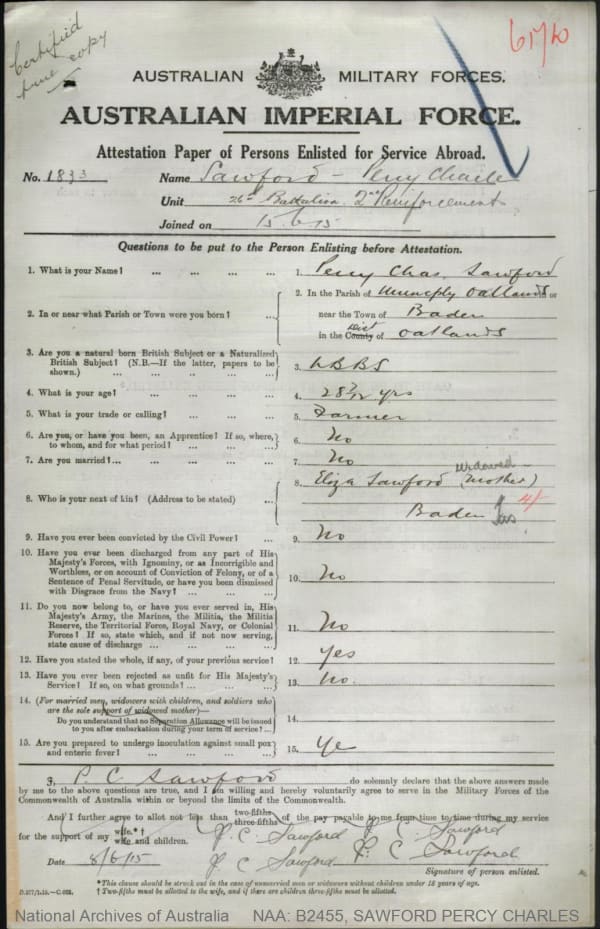 Certified
true copy
6170
AUSTRALIAN MILITARY FORCES.
AUSTRALIAN IMPERIAL FORCE.
Attestation Paper of Persons Enlisted for Service Abroad.
No. 1833 Name Sawford - Percy Charles
Unit 26th Battalion 2nd Reinforcement
Joined on 15.6.15
Questions to be put to the Person Enlisting before Attestation.
1. What is your Name? ... ... ... ... 1. Percy Chas. Sawford
2. In or near what Parish or Town were you born? ... 2. In the Parish of Oatlands or
near the Town of Baden
in the County Dist of Oatlands
3. Are you a natural born British Subject or a Naturalized
British Subject? (N.B.—If the latter, papers to be
shown.) ... ... ... ... ... 3. NBBS
4. What is your age? ... ... ... ... 4. 28 7/12 yrs
5. What is your trade or calling? ... ... ... 5. Farmer
6. Are you, or have you been, an Apprentice? If so, where,
to whom, and for what period? ... ... ... 6. No
7. Are you married? ... ... ... ... ... 7. No
8. Who is your next of kin? (Address to be stated) ... 8. Eliza Sawford (mother) widowed
Baden Tas
9. Have you ever been convicted by the Civil Power? ... 9. No
10. Have you ever been discharged from any part of His
Majesty's Forces, with Ignominy, or as Incorrigible and
Worthless, or on account of Conviction of Felony, or of a
Sentence of Penal Servitude, or have you been dismissed
with Disgrace from the Navy? ... ... ... 10. No
11. Do you now belong to, or have you ever served in, His
Majesty's Army, the Marines, the Militia, the Militia
Reserve, the Territorial Force, Royal Navy, or Colonial
Forces? If so, state which, and if not now serving,
state cause of discharge ... ... ... ... 11. No
12. Have you stated the whole, if any, of your previous service? 12. Yes
13. Have you ever been rejected as unfit for His Majesty's
Service? If so, on what grounds? ... ... ... 13. No.
14. (For married men, widowers with children, and soldiers who
are the sole support of widowed mother)—
Do you understand that no Separation Allowance will be issued
to you after embarkation during your term of service? ... 14.
15. Are you prepared to undergo inoculation against small pox
and enteric fever? ... ... ... ... 15. Yes
I, P. C. Sawford do solemnly declare that the above answers made
by me to the above questions are true, and I am willing and hereby voluntarily agree to serve in the Military Forces of the
Commonwealth of Australia within or beyond the limits of the Commonwealth.
And I further agree to allot not less than two-fifths three-fifths of the pay payable to me from time to time during my service
for the support of my wife.*† wife and children. P. C. Sawford P. C. Sawford
Date 8/6/15 P. C Sawford P. C Sawford
Signature of person enlisted.
* This clause should be struck out in the case of unmarried men or widowers without children under 18 years of age.
† Two-fifths must be allotted to the wife, and if there are children three-fifths must be allotted.
National Archives of Australia NAA: B2455, SAWFORD PERCY CHARLES